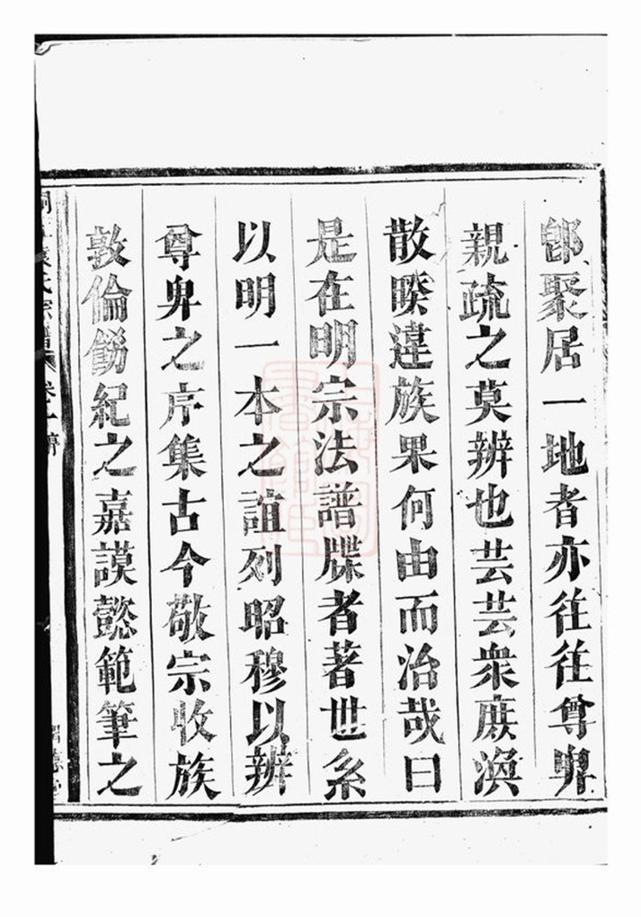 卽聚居一地者亦往往尊卑
親疏之莫辨也芸芸衆庶渙
散睽違族果何由而治哉曰
是在明宗法譜牒者著世系
以明一本之誼列昭穆以辨
尊卑之序集古今敬宗收族
敦倫飭紀之嘉謨懿範筆之
氏宗譜 卷一